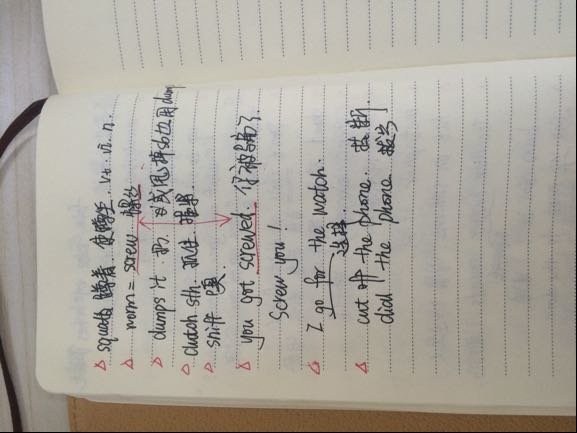 squats 蹲着 使蹲坐 vt. vi. n.
worm = screw 螺丝
dumps it 扔, 甩或甩掉sb也用dump
clutch sth. 抓住
snift 嗅
you got screwed. 你被搞了
Screw you!
I go for the watch.
选择
cut off the phone. 挂断
dial the phone. 拨